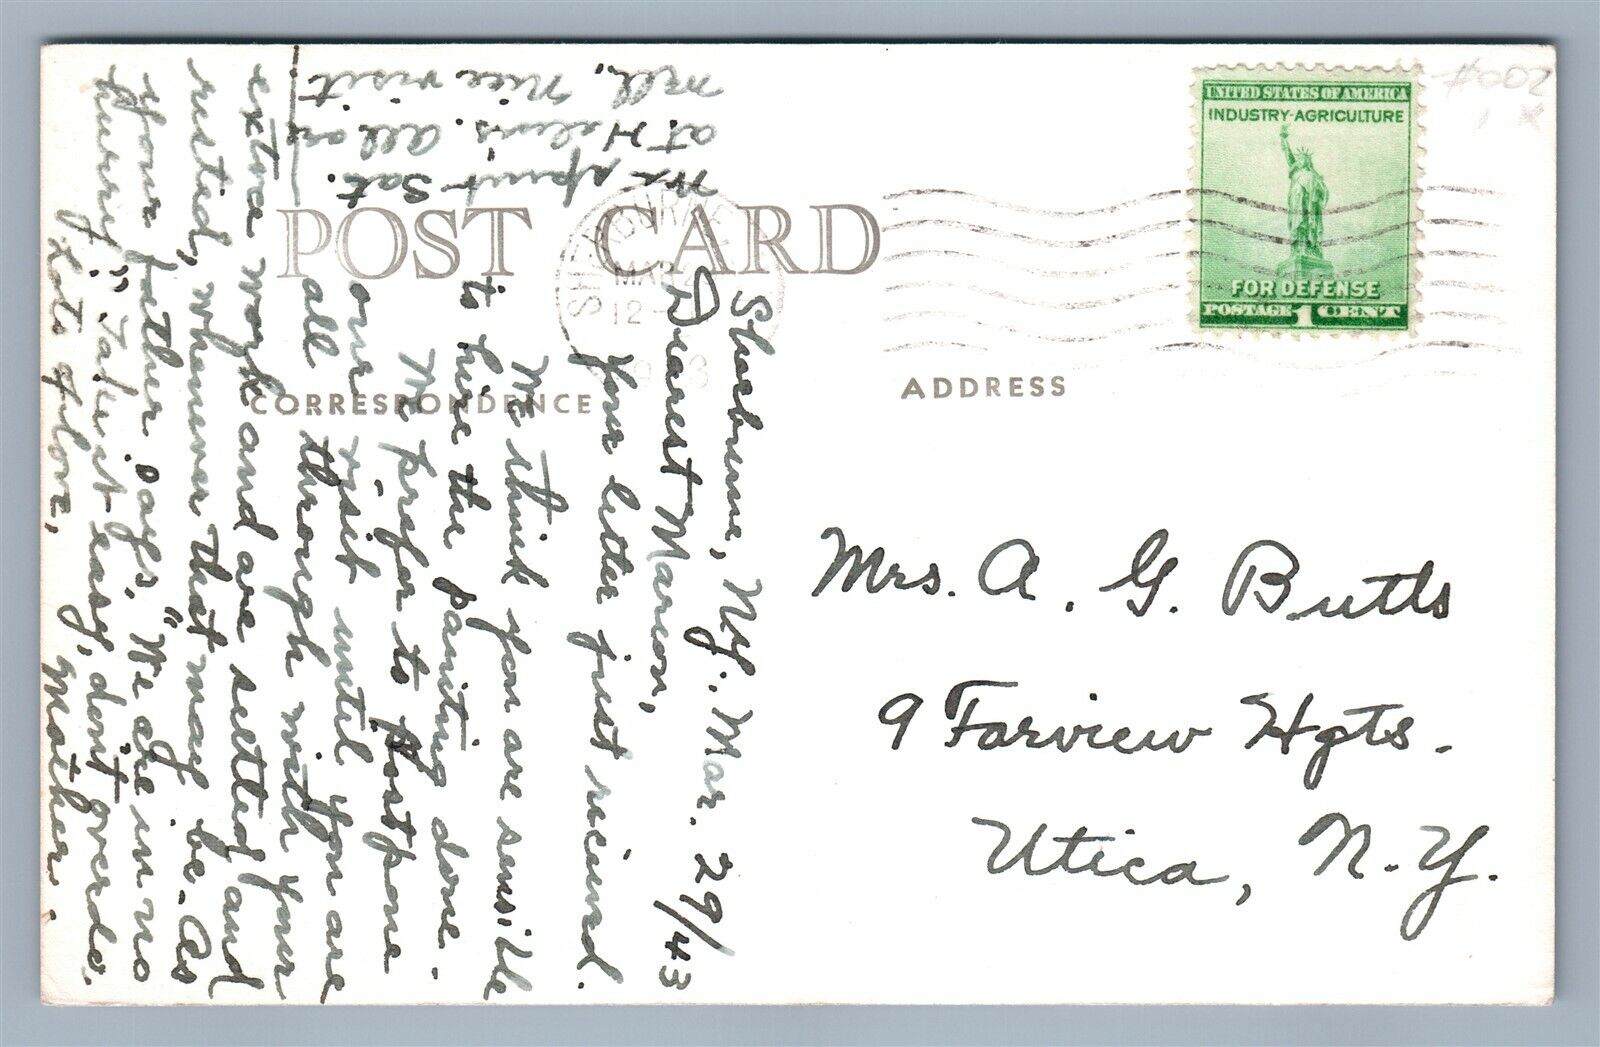 POST CARD
CORRESPONDENCE
ADDRESS
UNITED STATES OF AMERICA
INDUSTRY-AGRICULTURE
FOR DEFENSE
POSTAGE 1 CENT
SHERBURNE
MAR
12
Sherburne, N.Y., Mar. 29/43
Dearest Marion,
Your letter just received.
We think you are sensible
to hire the painting done.
We prefer to postpone
our visit until you are
all through with your
extra work and are settled and
rested, whenever that may be. As
your father says, "We are in no
hurry." Take it easy, don't overdo.
Lots of love,
Mother.
We spent Sat.
at Helen's. All are
well. Nice visit
Mrs. A. G. Butts
9 Farview Hgts.
Utica, N.Y.